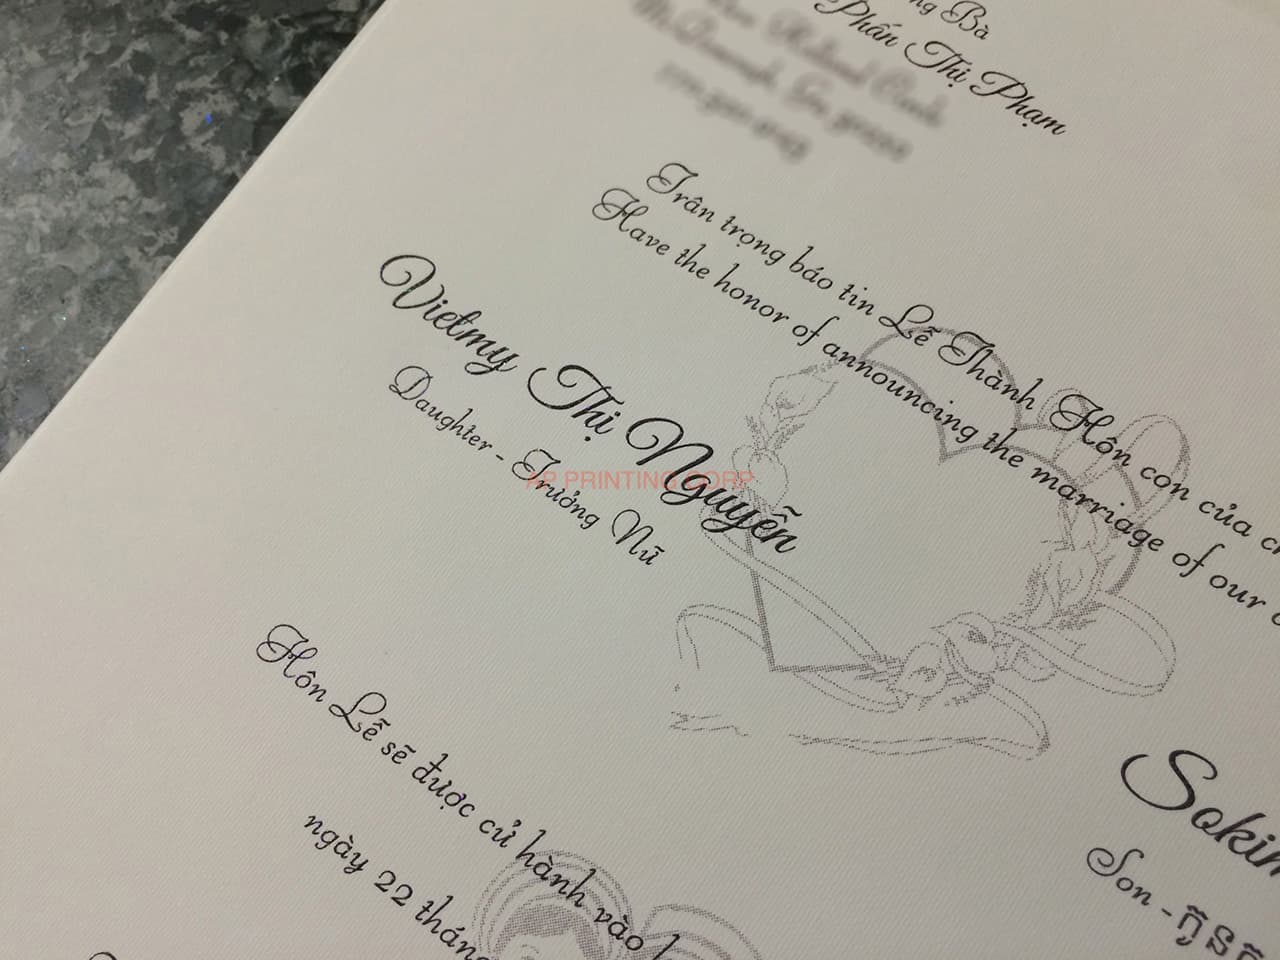 Bà
Phấn Thị Phạm
Trân trọng báo tin Lễ Thành Hôn con của
Have the honor of announcing the marriage of our
Vietmy Thị Nguyễn
Daughter - Trưởng Nữ
AP PRINTING CORP
Sokim
Son -
Hôn Lễ sẽ được cử hành vào
ngày 22 tháng